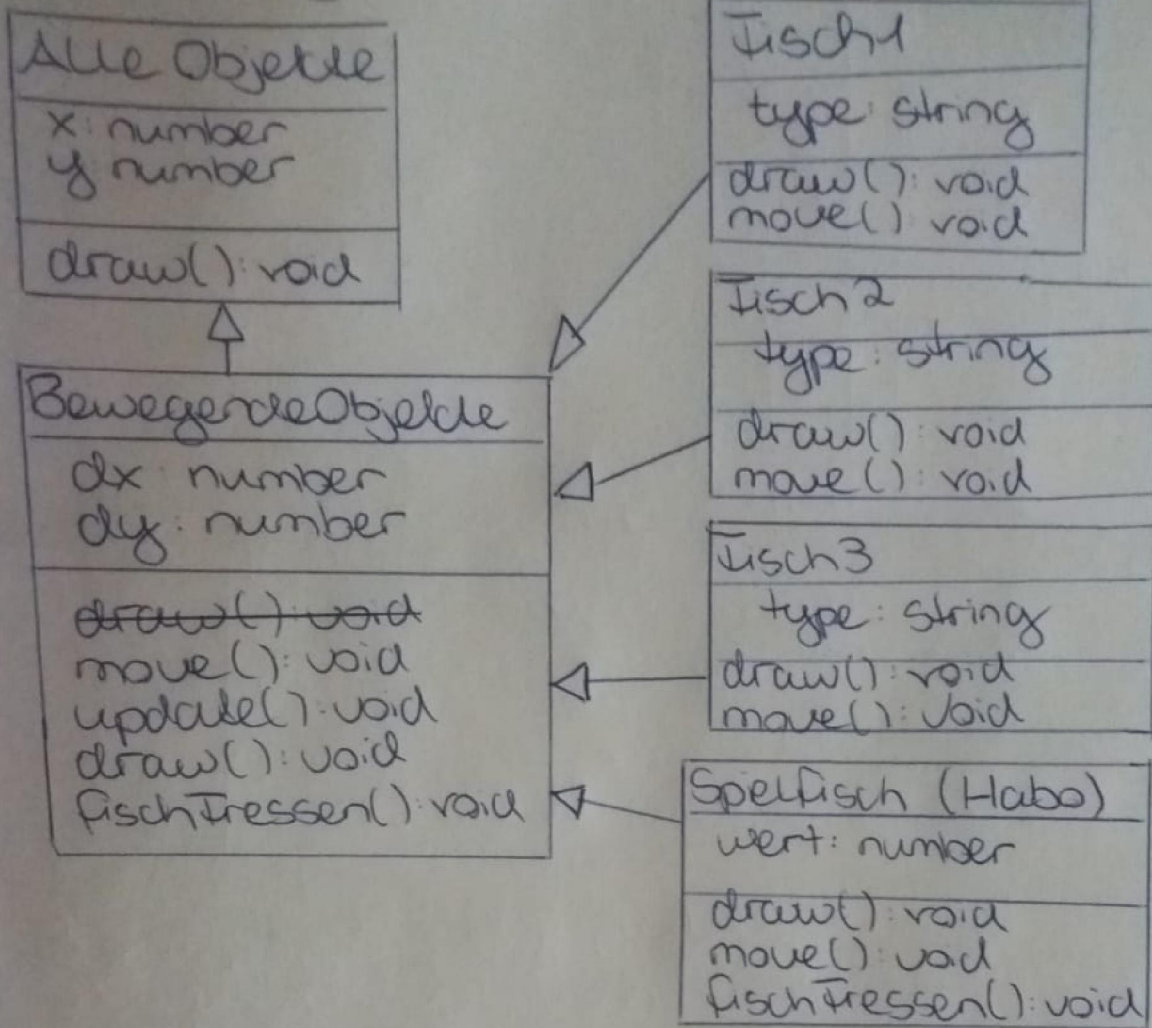 Alle Objekte
x: number
y number
draw(): void
BewegendeObjekte
dx number
dy: number
draw() void
move(): void
update(): void
draw(): void
fischFressen(): void
Fisch1
type: string
draw(): void
move() void
Fisch2
type: string
draw(): void
move(): void
Fisch3
type: string
draw(): void
move(): void
Spielfisch (Habo)
wert: number
draw(): void
move(): void
fischFressen(): void